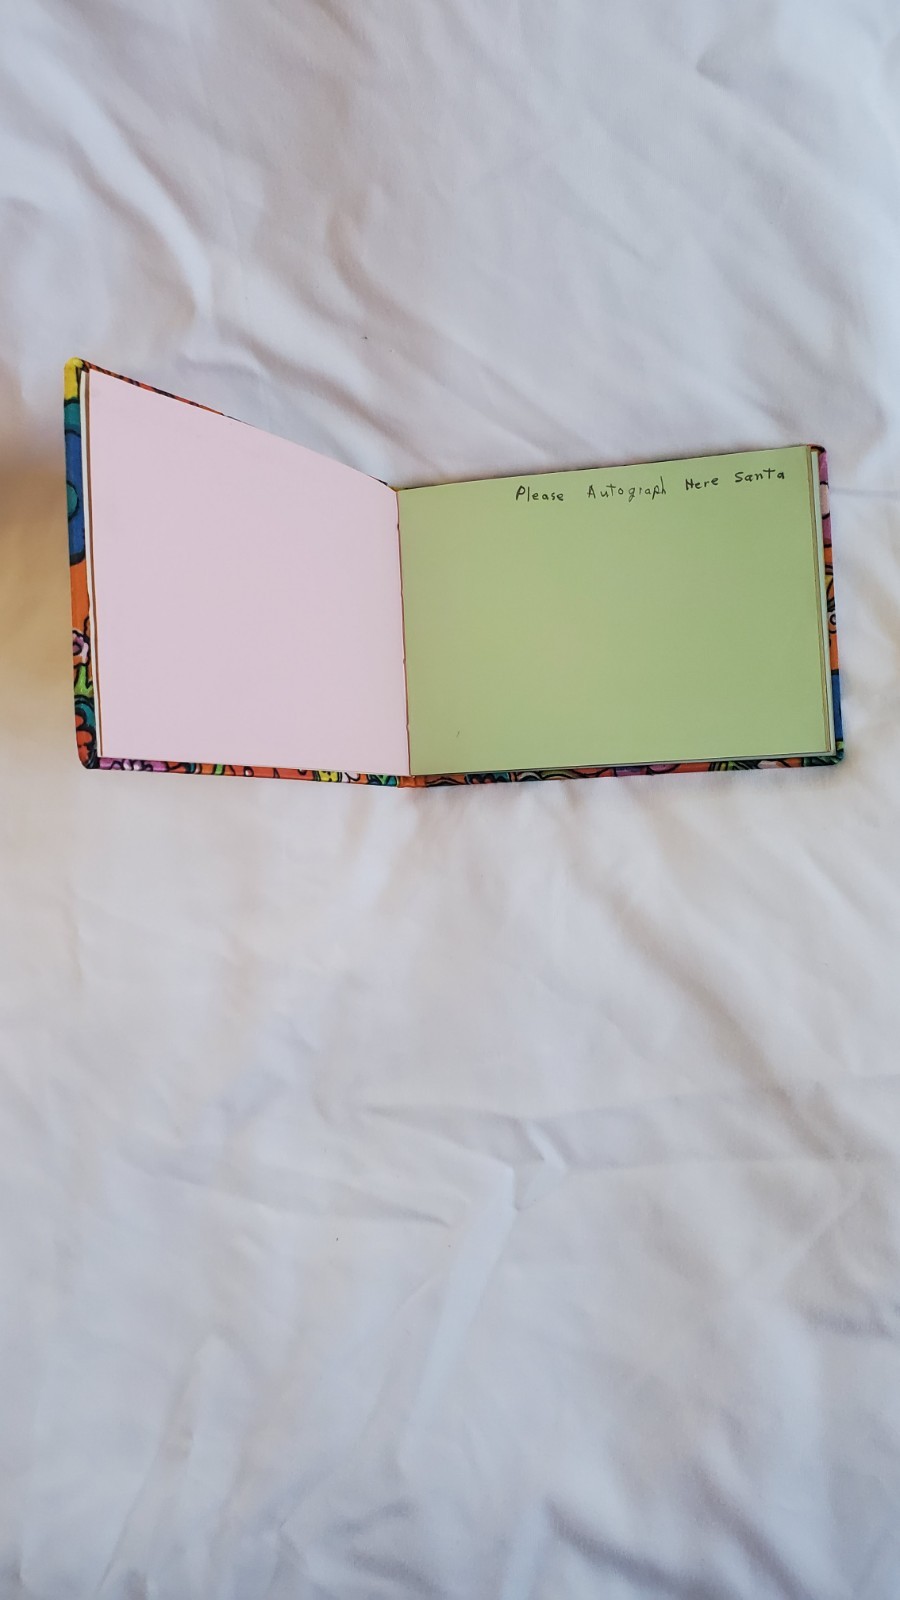 Please Autograph Here Santa